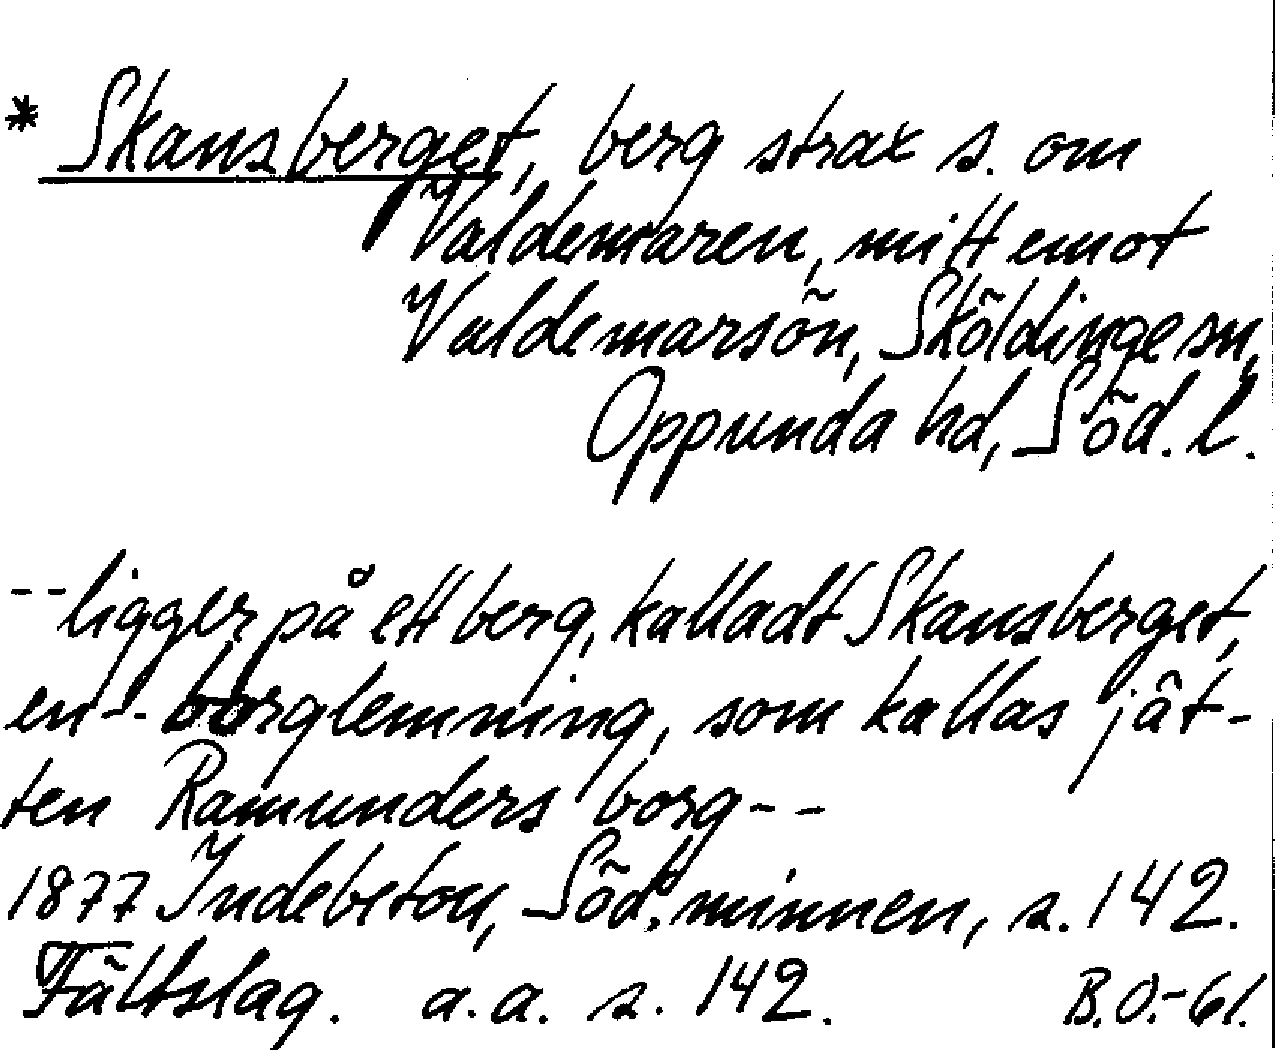 * Skansberget, berg strax s. om
Valdemaren, mitt emot
Valdemarsön, Sköldinge sn,
Oppunda hd, Söd. l.
--ligger på ett berg, kalladt Skansberget,
en -- borglemning, som kallas jät-
ten Ramunders borg--
1877 Indebetou, Söd. minnen, s. 142.
Fältslag. a.a. s. 142. B.O.-61.